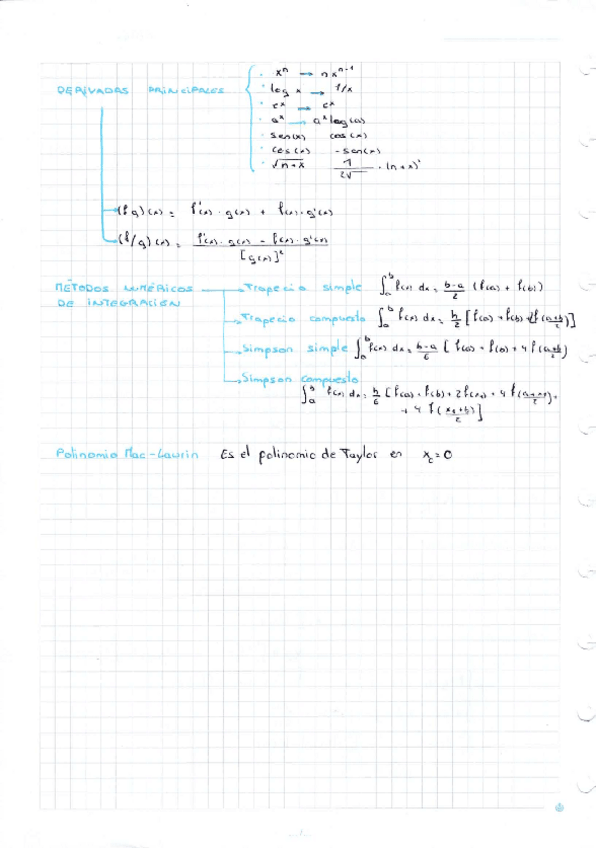 DERIVADAS PRINCIPALES
· xⁿ → n xⁿ⁻¹
· log x → 1/x
· eˣ → eˣ
· aˣ → aˣ log(a)
· sen(x) cos(x)
· cos(x) -sen(x)
· √n+x 1/2√ · (n+x)'
(f g)(x) = f'(x) · g(x) + f(x) · g'(x)
(f/g)(x) = f'(x) · g(x) - f(x) · g'(x) / [g(x)]²
MÉTODOS NUMÉRICOS DE INTEGRACIÓN
Trapecio simple ∫ₐᵇ f(x) dx = b-a/2 (f(a) + f(b))
Trapecio compuesto ∫ₐᵇ f(x) dx = h/2 [f(a) + f(b) + 2f(a+b/2)]
Simpson simple ∫ₐᵇ f(x) dx = b-a/6 [f(a) + f(b) + 4 f(a+b/2)
Simpson compuesto
∫ₐᵇ f(x) dx = h/6 [f(a) + f(b) + 2f(x₁) + 4 f(a+x₁/2) +
+ 4 f(x₁+b/2)]
Polinomio Mac-Laurin Es el polinomio de Taylor en x₀ = 0